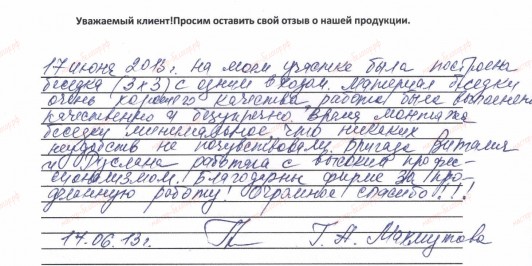 Уважаемый клиент!Просим оставить свой отзыв о нашей продукции.
17 июня 2013г. на моём участке была построена
беседка (3х3) с одним входом. Материал беседки
очень хорошего качества, работа была выполнена
качественно и безупречно. Время монтажа
беседки минимальное, что никаких
неудобств не почувствовали. Бригада Виталия
и Руслана работала с высоким профес-
сионализмом. Благодарны фирме за про-
деланную работу! Огромное спасибо!!!
17.06.13г. Г. А. Махмутова